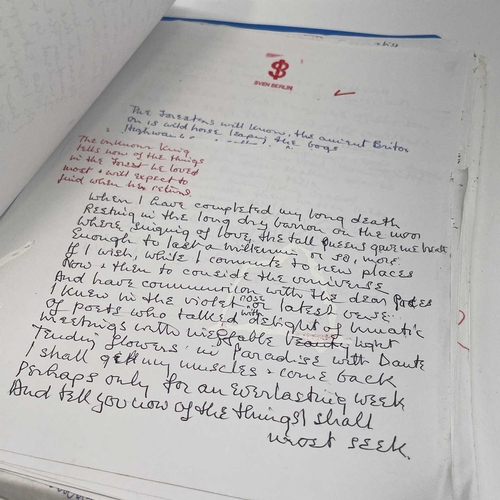 SVEN BERLIN
The Foresters will know, the ancient Briton
on is wild horse leaping the bogs
Highwa
The unknown King
tells now of the things
in the Forest he loved
most & will expect to
find when he returns.
When I have completed my long death
Resting in the long dry barrow on the moor
Where, singing of love, the tall Queens gave me health
Enough to last a millennium or so, more
If I wish, while I commute to new places
Now & then to conside the universe
And have communion with the dear Poetes
I knew in the violet nose or latest verse
of poets who talked with delight of lunatic
meetings with ineffable light
Tending flowers in Paradise with Dante
I shall my muscles & come back
Perhaps only for an everlasting week
And tell you now of the things I shall
most seek.